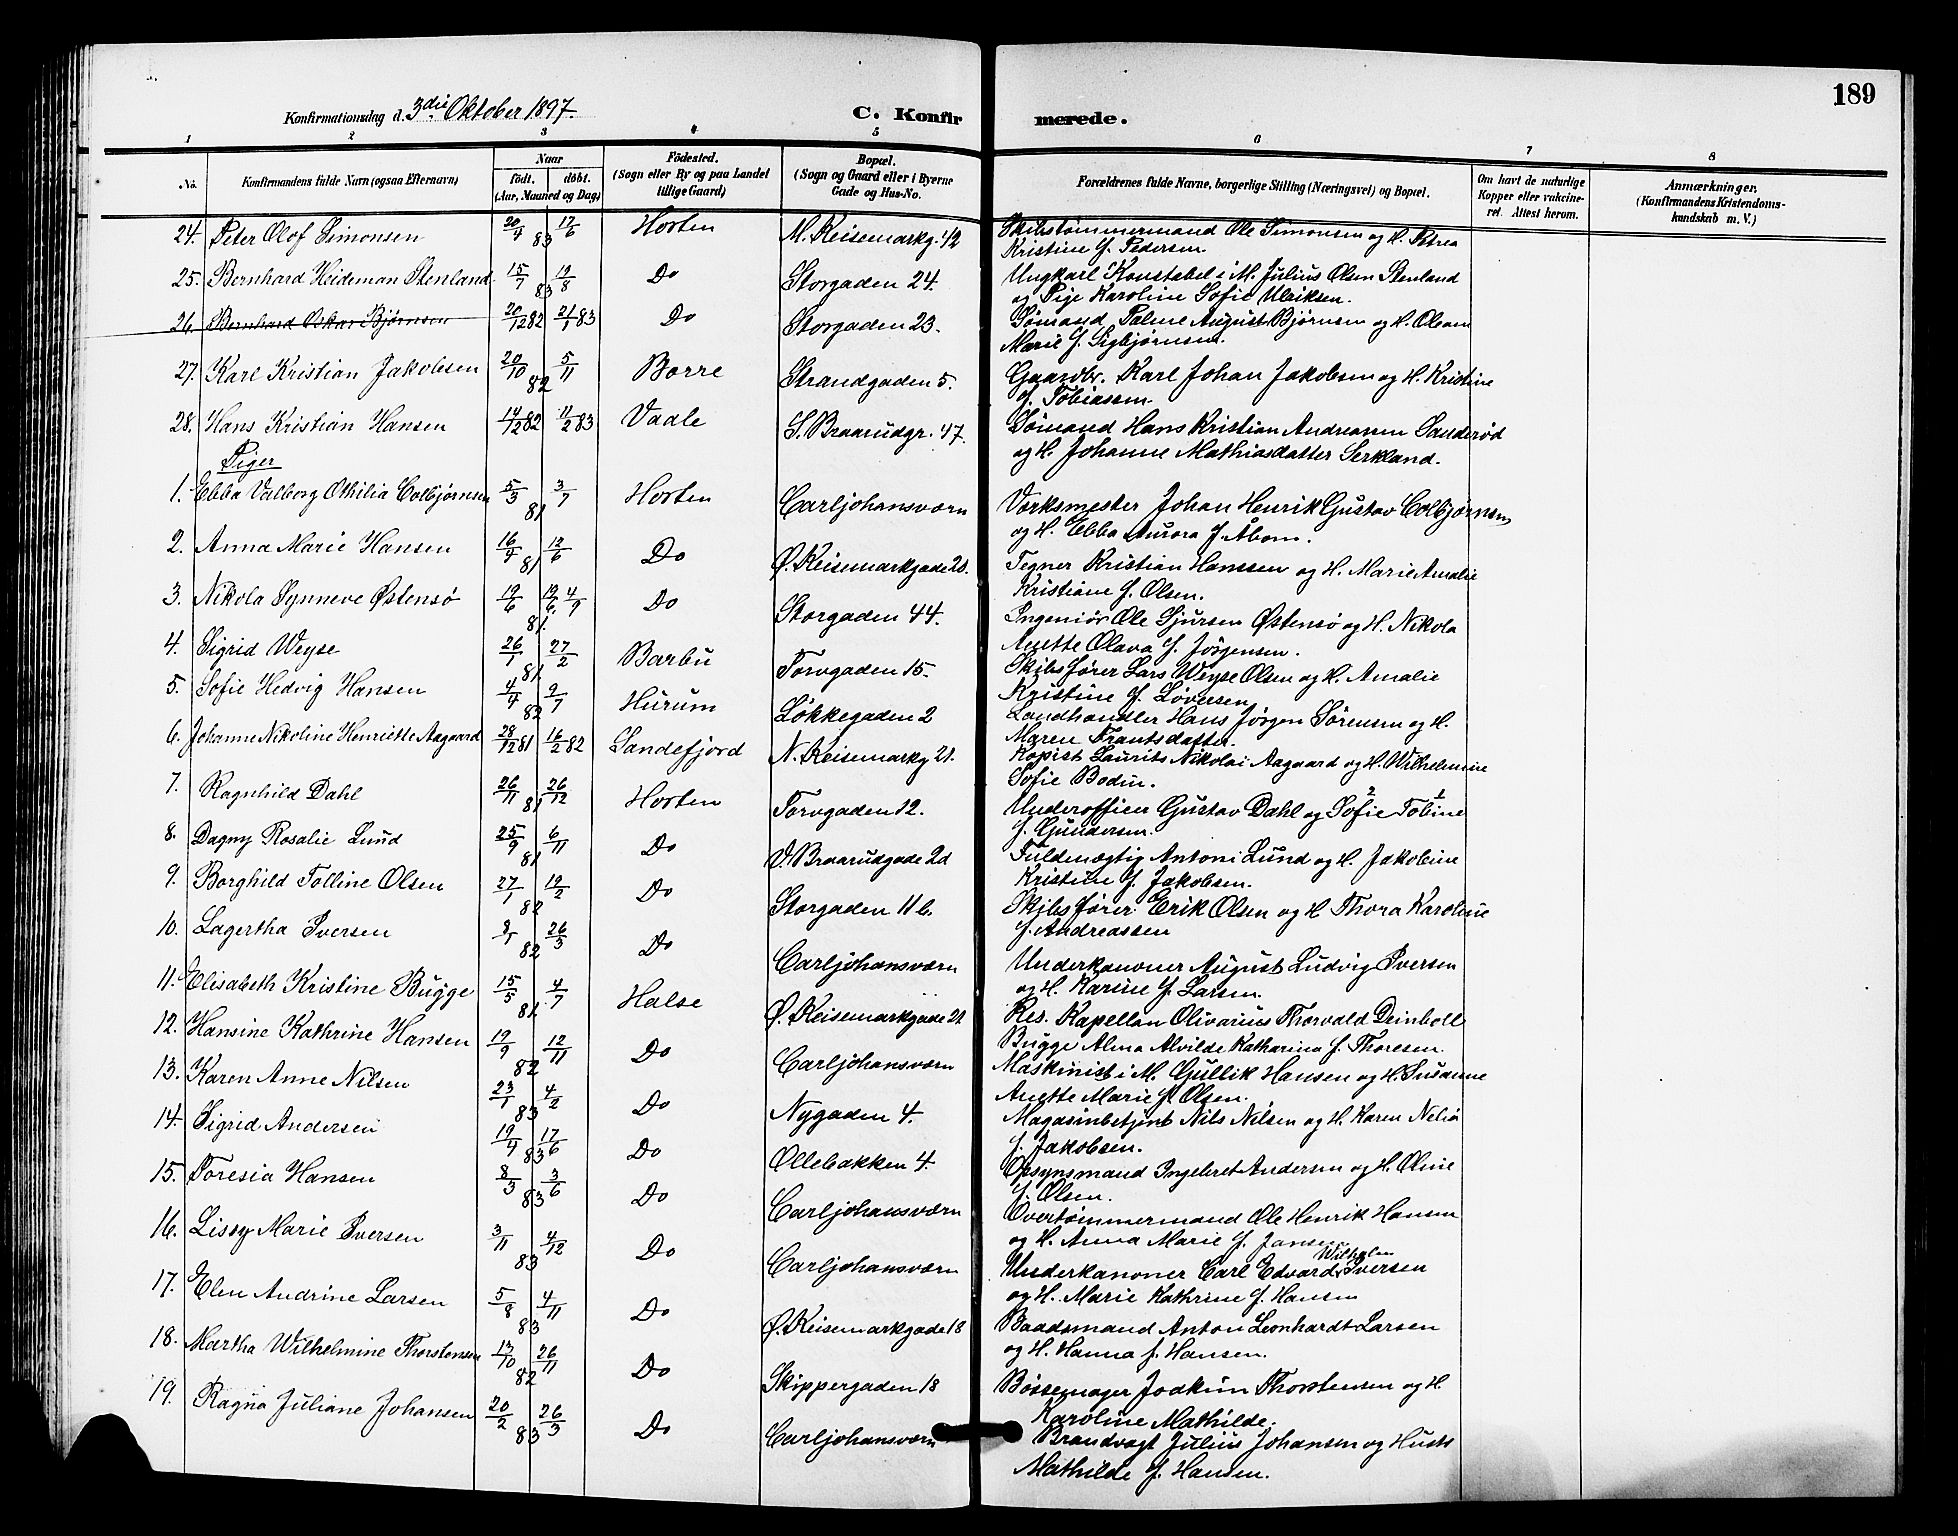 189
Konfirmationsdag d. 3die Oktober 1897. C. Konfirmerede.
1 2 3 4 5 6 7 8
No. Konfirmandens fulde Navn (ogsaa Efternavn) Naar født. døbt. (Aar, Maaned og Dag) Fødested. (Sogn eller By og paa Landet tillige Gaard) Bopæl. (Sogn og Gaard eller i Byerne Gade og Hus-No. Forældrenes fulde Navne, borgerlige Stilling (Næringsvei) og Bopæl. Om havt de naturlige Kopper eller vaccineret. Attest herom. Anmærkninger. (Konfirmandens Kristendomskundskab m. V.)
24. Peter Olof Simonsen 20/4 83 17/6 Horten M. Keisemarkg. 42 Skibstømmermand Ole Simonsen og H. Petrea
Kristine f. Pedersen
25. Bernhard Heideman Stenland 15/7 83 19/8 Do Storgaden 24. Ungkarl Konstabel i M. Julius Olsen Stenland
og Pige Karoline Sofie Ulriksen.
26. Bernhard Oskar Bjørnsen 20/12 82 21/1 83 Do Storgaden 23. Sømand Palme August Bjørnsen og H. Oleam
Marie f. Sigbjørnsen.
27. Karl Kristian Jakobsen 20/10 82 5/11 Borre Strandgaden 5. Gaardbr. Karl Johan Jakobsen og H. Kristine
f. Tobiassen
28. Hans Kristian Hansen 14/12 82 11/2 83 Vaale S. Braarudgr. 47. Sømand Hans Kristian Andreassen Sanderød
og H. Johanne Mathiasdatter Serkland.
Piger
1. Ebba Valborg Othilia Colbjørnsen 5/3 81 3/7 Horten Carljohansværn Værksmester Johan Henrik Gustav Colbjørnsen
og H. Ebba Aurora f. Åbom.
2. Anna Marie Hansen 16/4 81 12/6 Do Ø. Keisemarkgade 20. Tegner Kristian Hanssen og H. Marie Amalie
Kristiane f. Olsen.
3. Nikola Synneve Østensø 19/6 81. 19/6 4/9 Do Storgaden 44. Ingeniør Ole Sjursen Østensø og H. Nikola
Anette Olava f. Jørgensen.
4. Sigrid Weyse 26/1 81 27/2 Barbu Torvgaden 15. Skibsfører Lars Weyse Olsen og H. Amalie
Kristine f. Løversen
5. Sofie Hedvig Hansen 4/4 82 9/7 Hurum Løkkegaden 2 Landhandler Hans Jørgen Sørensen og H.
Maren Frantsdatter.
6. Johanne Nikoline Henriette Aagaard 28/12 81 16/2 82 Sandefjord N. Keisemarkg 21. Kopist Laurits Nikolai Aagaard og H. Wilhelmine
Sofie Bodin.
7. Ragnhild Dahl 26/11 81 26/12 Horten Torvgaden 12. Underofficer Gustav Dahl og Sofie 2 Tobine 1
f. Gundersen.
8. Dagny Rosalie Lund 25/9 81 6/11 Do V. Braarudgade 2d Fuldmægtig Antoni Lund og H. Jakobine
Kristine f. Jakobsen.
9. Borghild Tolline Olsen 27/1 82 19/2 Do Storgaden 11 b. Skibsfører Erik Olsen og H Thora Karoline
f. Andreassen
10. Lagertha Iversen 9/1 82 26/3 Do Carljohansværn Underkanoner August Ludvig Iversen
og H. Karine f. Larsen.
11. Elisabeth Kristine Bugge 15/5 81. 4/7 Halse Ø. Keisemarkgade 21 Res. Kapellan Olivarius Thorvald Deinboll
Bugge Alma Alvilde Katharina f. Thoresen.
12. Hansine Kathrine Hansen 19/9 82 12/11 Do Carljohansværn Maskinist i M. Gullik Hansen og H. Susanne
Anette Marie f. Olsen.
13. Karen Anne Nilsen 23/1 83 4/2 Do Nygaden 4. Magasinbetjent Nils Nilsen og H. Karen Nelia
f. Jakobsen.
14. Sigrid Andersen 19/4 83 17/6 Do Ollebakken 4. Opsynsmand Ingebret Andersen og H. Oline
f. Olsen.
15. Toresia Hansen 8/3 83 3/6 Do Carljohansværn Overtømmermand Ole Henrik Hansen
og H. Anna Marie f. Jansen
16. Lissy Marie Iversen 3/11 83 4/12 Do Carljohansværn Underkanoner Carl Edvard Wilhelm Iversen
og H. Marie Kathrine f. Hansen
17. Elen Andrine Larsen 5/8 83 4/11 Do Ø. Keisemarkgade 18 Baadsmand Anton Leonhardt Larsen
og H. Hanna f. Hansen.
18. Martha Wilhelmine Thorstensen 13/10 82 26/11 Do Skippergaden 18 Bøssemager Joakim Thorstensen og H.
Karoline Mathilde.
19. Ragna Juliane Johansen 20/2 83 26/3 Do Carljohansværn Brandvagt Julius Johansen og Hustr
Mathilde f. Hansen.